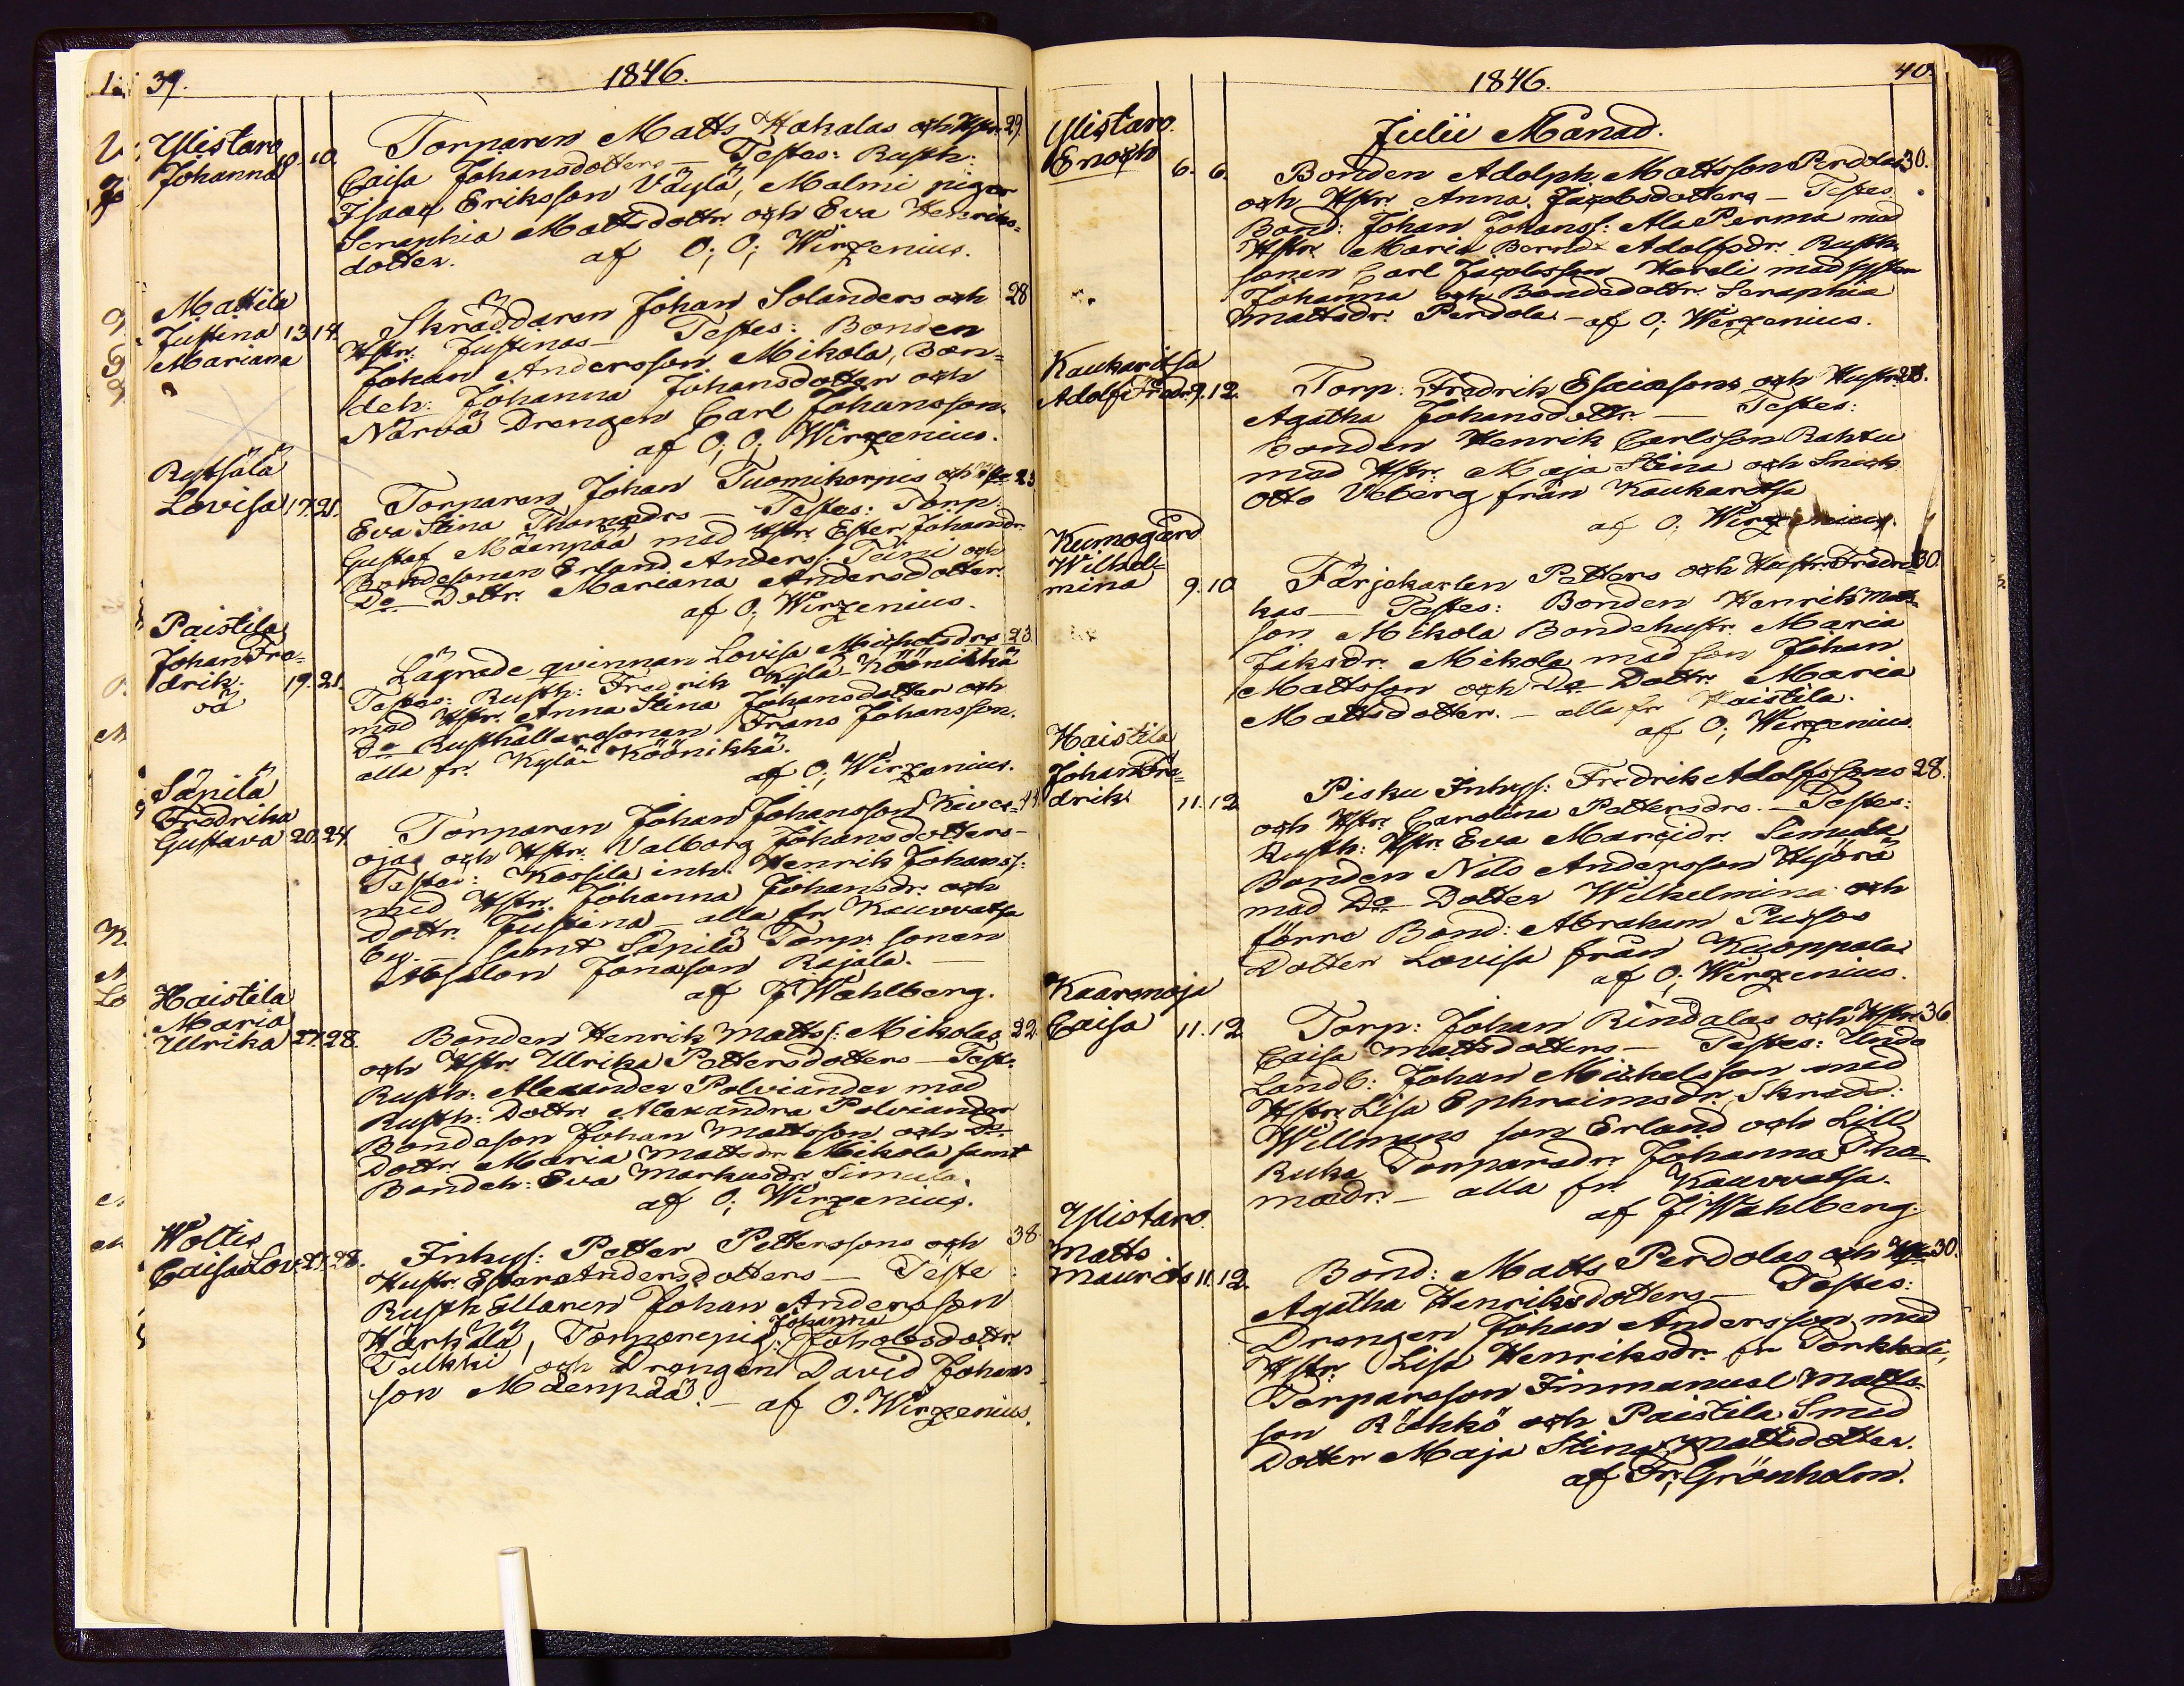 39.
1846.
Ylistaro
Johanna 10. 10.
Torparen Matts Hakalas och Hstr. 29.
Caisa Johansdotters — Testes: Rusth:
Isaac Eriksson Väylä, Malmi pigor
Seraphia Mattsdottr. och Eva Henriks=
dotter. af O; O; Wirzenius.
Mattila
Justina 13 14.
Mariana
Skräddaren Johan Solanders och 28
Hstr. Justinas — Testes: Bonden
Johan Andersson Mikola, Bon=
deh: Johanna Johansdotter och
Närvä Drengen Carl Johansson.
af O; O; Wirzenius.
Rytsälä
Lovisa 17. 21.
Torparen Johan Tuomikorpis och 23
Eva Stina Thomædrs — Testes: Torp.
Gustaf Mäenpää med Hstr. Ester Johansdr.
Bondesonen Erland Anderss. Teini och
Do Dottr. Mariana Andersdotter.
af O; Wirzenius.
Paistila
Johan Fre=
drik. 19. 21.
oä
Lägrade qvinnan Lovisa Michelsdrs 23.
Testes: Rusth: Fredrik Kylä-Köönikkä
med Hstr. Anna Stina Johansdotter och
Do Rusthållaresonen Frans Johansson.
alla fr. Kylä Köönikkä.
af O; Wirzenius.
Säpilä
Fredrika
Gustava 20. 24.
Torparen Johan Johansson Kives=
ojas och Hstr. Valborg Johansdotters —
Testes: Kossila inh: Henrik Johanss:
med Hstr. Johanna Johansdr. och
Dottr. Justina — alla fr. Kauvvatsa
by. — samt Säpilä Torp: sonen
Absalon Jonasson Rajala. —
af J Wahlberg.
Haistila
Maria
Ulrika 27. 28.
Bonden Henrik Matts: Mikolas 22.
och Hstr. Ulrika Pettersdotters — Test:
Rusth: Alexander Polviander med
Rusth: Dottr. Alexandra Polviander
Bondeson Johan Mattsson och Do.
Dottr. Maria Mattsdr. Mikola samt
Bondeh: Eva Markusdr. Simula.
af O; Wirzenius.
Woltis
Caisa Lov. 27. 28.
Inhys: Petter Petterssons och 38.
Hustr. Esters Andersdotters — Teste:
Rusthållaren Johan Andersson
Johanna
Härkälä, Torparepig: Jakobsdottr.
Tulkki, och Drengen David Johans=
son Mäenpää. — af O. Wirzenius.
1846.
40.
Julii Månad.
Ylistaro.
Enoch 6. 6.
Bonden Adolph Mattsson Perdolas 30.
och Hstr. Anna Jacobsdotters — Testes
Bond: Johan Johanss: Ala Perma med
Hstr. Maria Adolfsdr. Rusth:
sonen Carl Jacobsson Hardi med syster
Johanna och Bondedottr. Seraphia
Mattsdr. Perdola — af O; Wirzenius.
Kaukaritsa
Adolf Fredr. 9. 12.
Torp: Fredrik Esaiæsons och Hustr. 28.
Agatha Johansdottr. — Testes:
Bonden Henrik Carlsson Rahtu
med Hstr. Maja Stina och Snick
Otto Veberg från Kaukaritsa
af O; Wirzenius.
Kumogård
Wilhel=
mina 9. 10
Färjekarlen Petters och Hustr. Fredri= 30.
kas — Testes: Bonden Henrik Matts=
son Mikola Bondehustr. Maria
Isksdr. Mikola med son Johan
Mattsson och Do Dottr. Maria
Mattsdotter. — alla fr. Haistila.
af O; Wirzenius.
Haistila
Johan Fre=
drik 11. 12
Pisku Inhys: Fredrik Adolfssons 28.
och Hstr. Carolina Pettersdrs. — Testes:
Rusth: Hstr. Eva Marcidr. Simula
Bonden Nils Andersson Hyörä
med Do Dotter Wilhelmina och
förre Bond: Abraham Pussos
Dotter Lovisa från Kuoppala
af O; Wirzenius.
Kaarenoja
Caisa 11. 12
Torp: Johan Rindalas och Hstr. 36
Caisa Mattsdotters — Testes: Undo
Landb: Johan Michelsson med
Hstr. Lisa Ephraimsdr. Skrædd:
Willmans son Erland och Lill
Ruka Torparedr. Johanna Tho=
mædr. — alla fr. Kauvvatsa.
af J Wahlberg.
Ylistaro.
Matts
Maurits 11. 12.
Bond: Matts Perdolas och Hstr. 30.
Agatha Henriksdotters — Testes:
Drengen Johan Andersson med
Hstr. Lisa Henriksdr. fr. Torkkeli,
Torparsson Immanuel Matts=
son Röhkö och Paistila Smed
Dotter Maja Stina Mattsdotter.
af Fr; Grönholm.